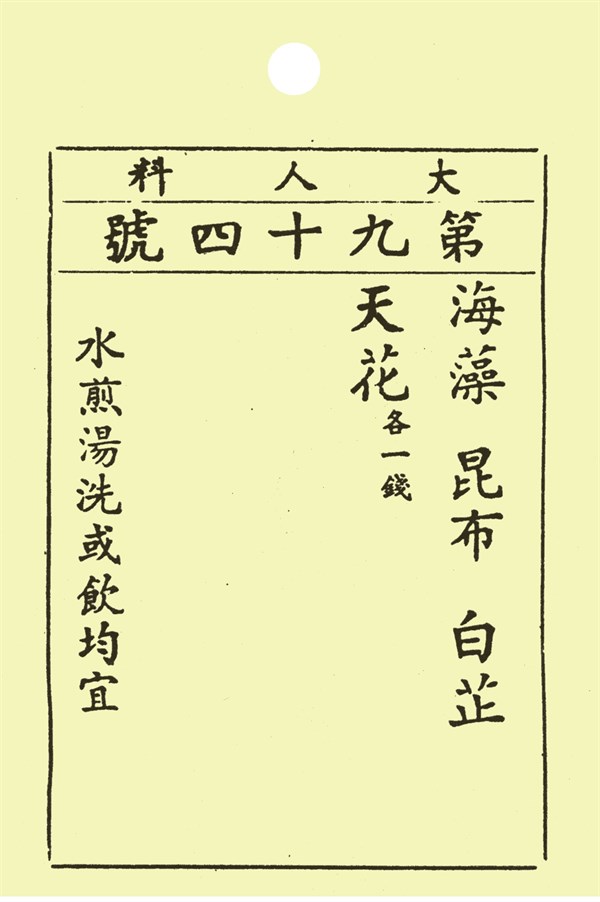 大人料
第九十四號
海藻 昆布 白芷
天花各一錢
水煎湯洗或飲均宜